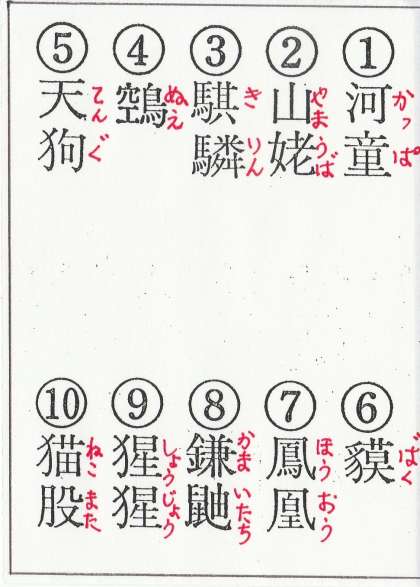 ①
河童
かっぱ
②
山姥
やまうば
③
騏驎
きりん
④
鵼
ぬえ
⑤
天狗
てんぐ
⑥
貘
ばく
⑦
鳳凰
ほうおう
⑧
鎌鼬
かまいたち
⑨
猩猩
しょうじょう
⑩
猫股
ねこまた